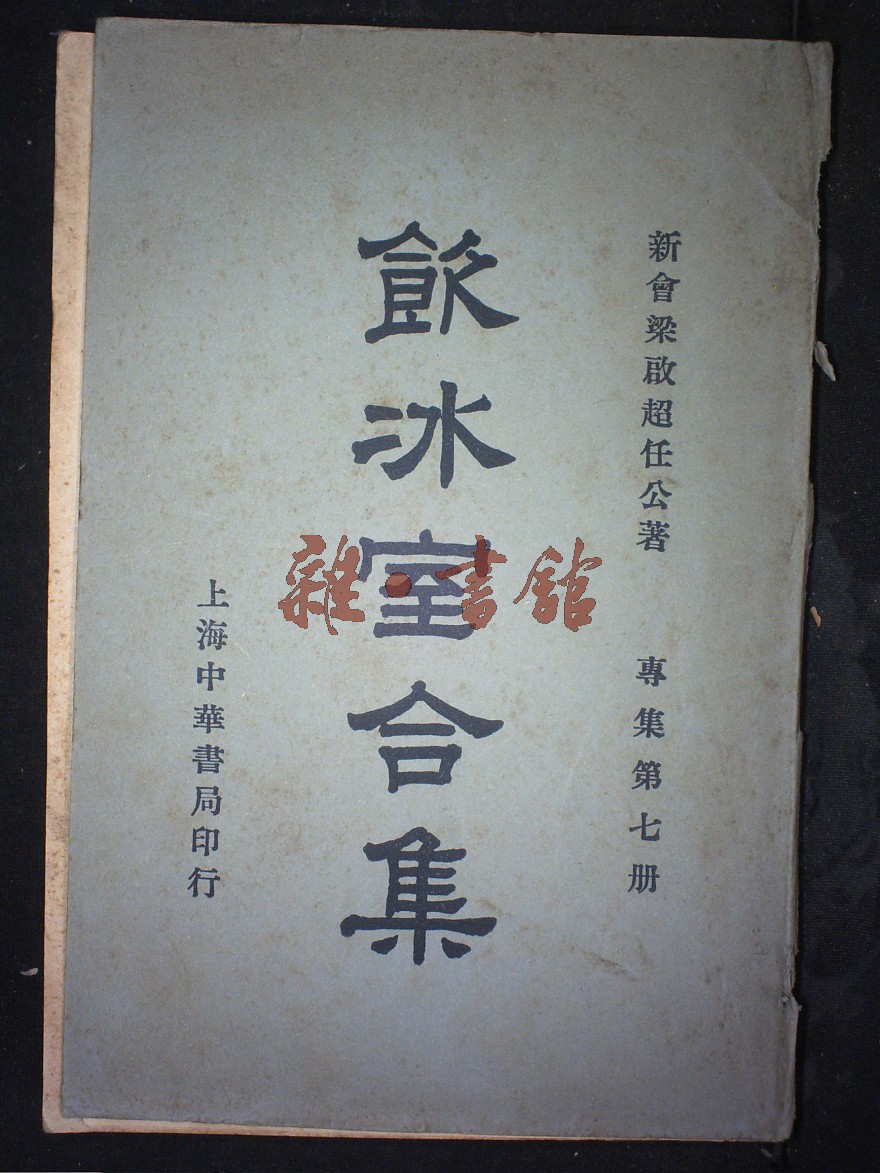 新會梁啟超任公著　專集第七册
飲冰室合集
上海中華書局印行
雜·書館